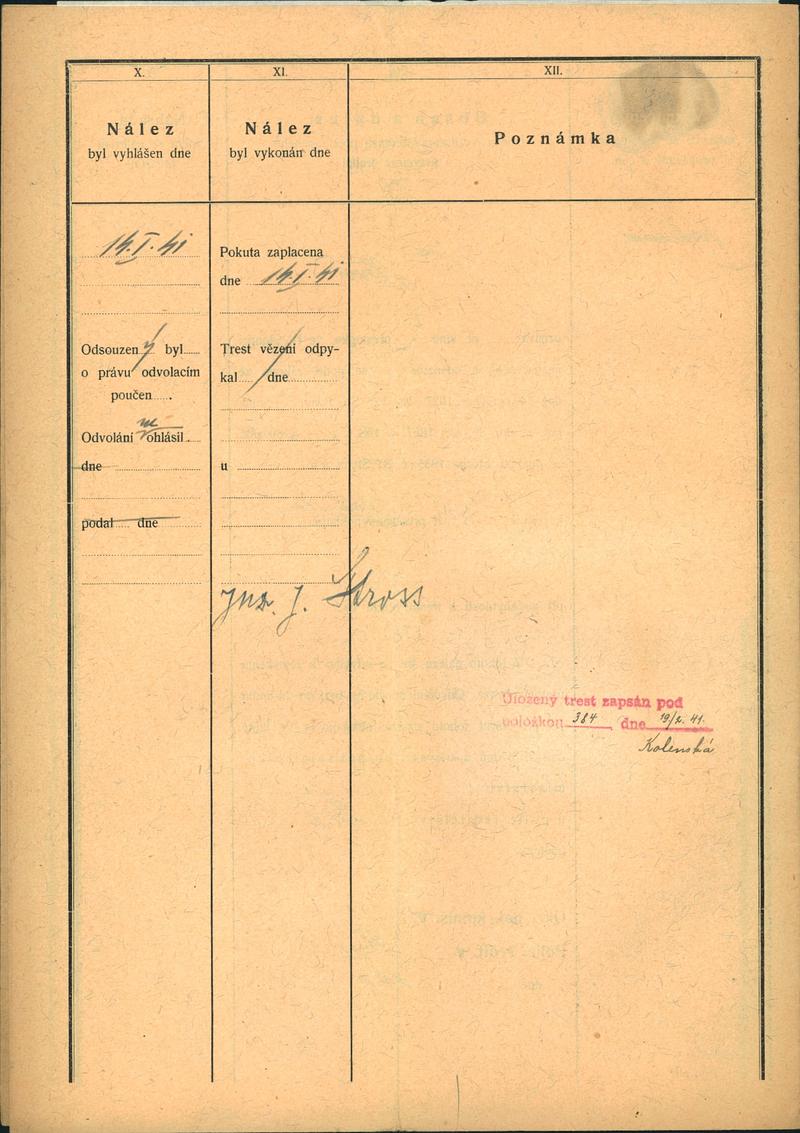 X.
Nález
byl vyhlášen dne
14.I.41
Odsouzený byl
o právu odvolacím
poučen
Odvolání neohlásil
dne
podal dne
XI.
Nález
byl vykonán dne
Pokuta zaplacena
dne 14.I.41
Trest vězení odpy-
kal dne
u
XII.
Poznámka
J. Stross
Uložený trest zapsán pod
položkou 384, dne 19/2.41.
Kolenská